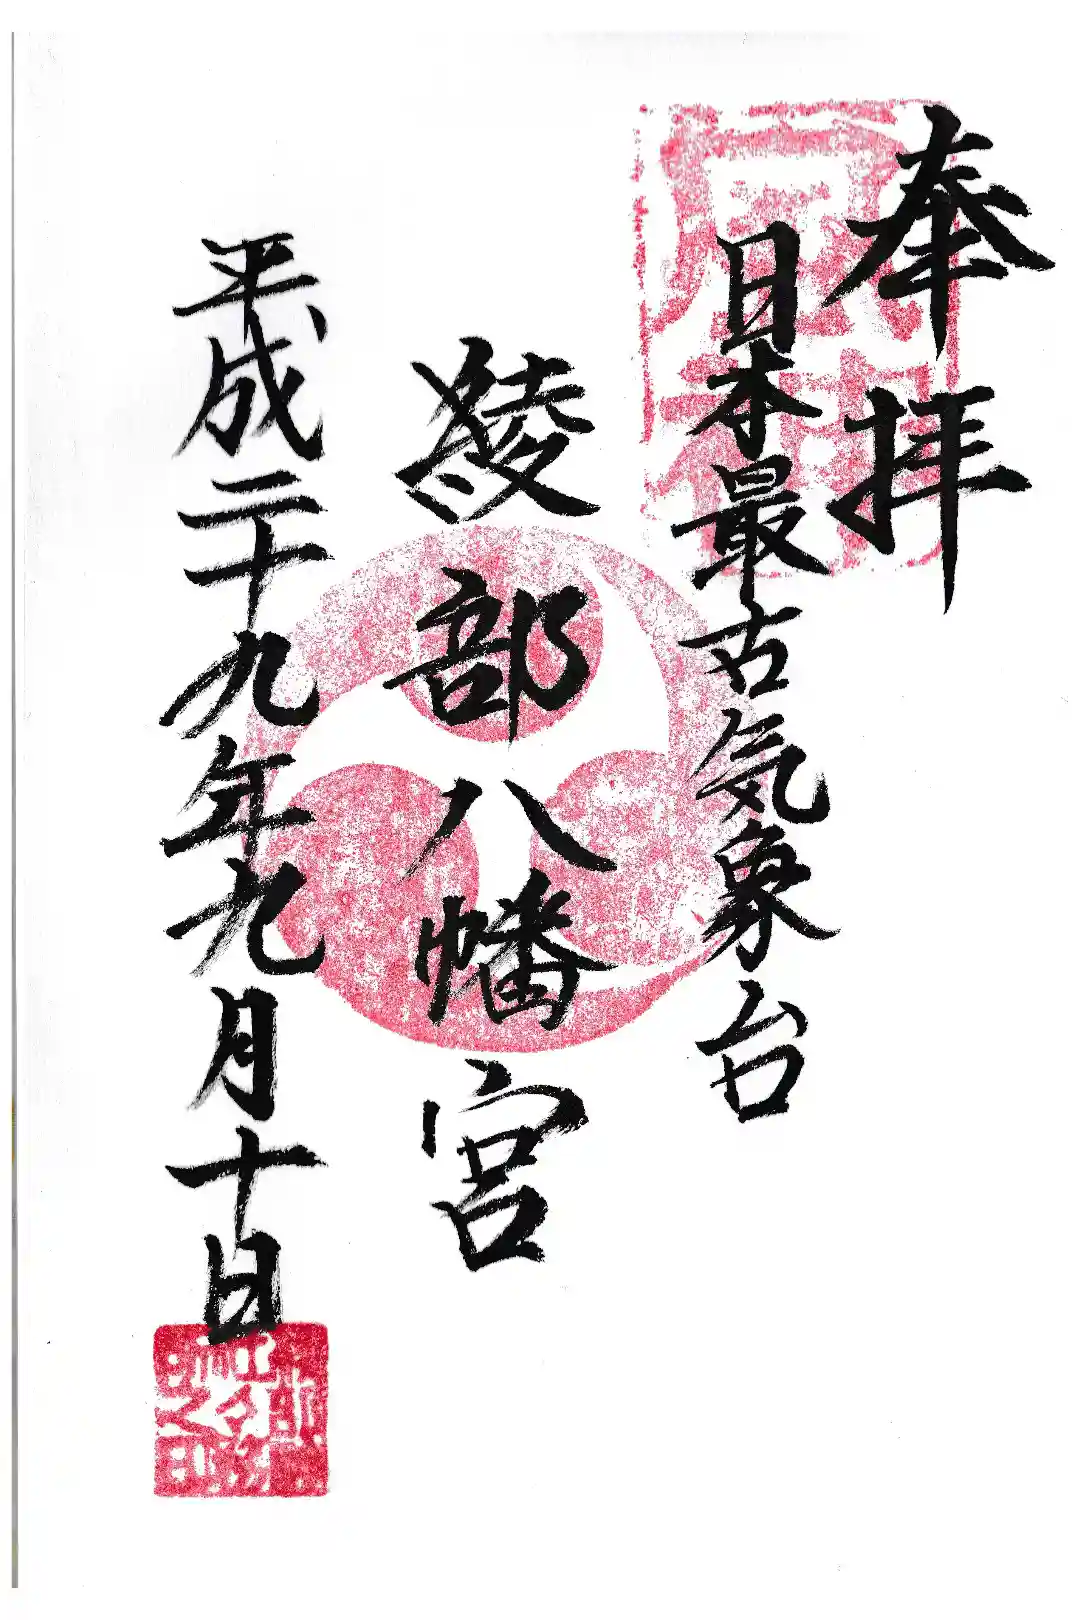 奉拝
日本最古気象台
綾部八幡宮
平成二十九年九月十日
風神